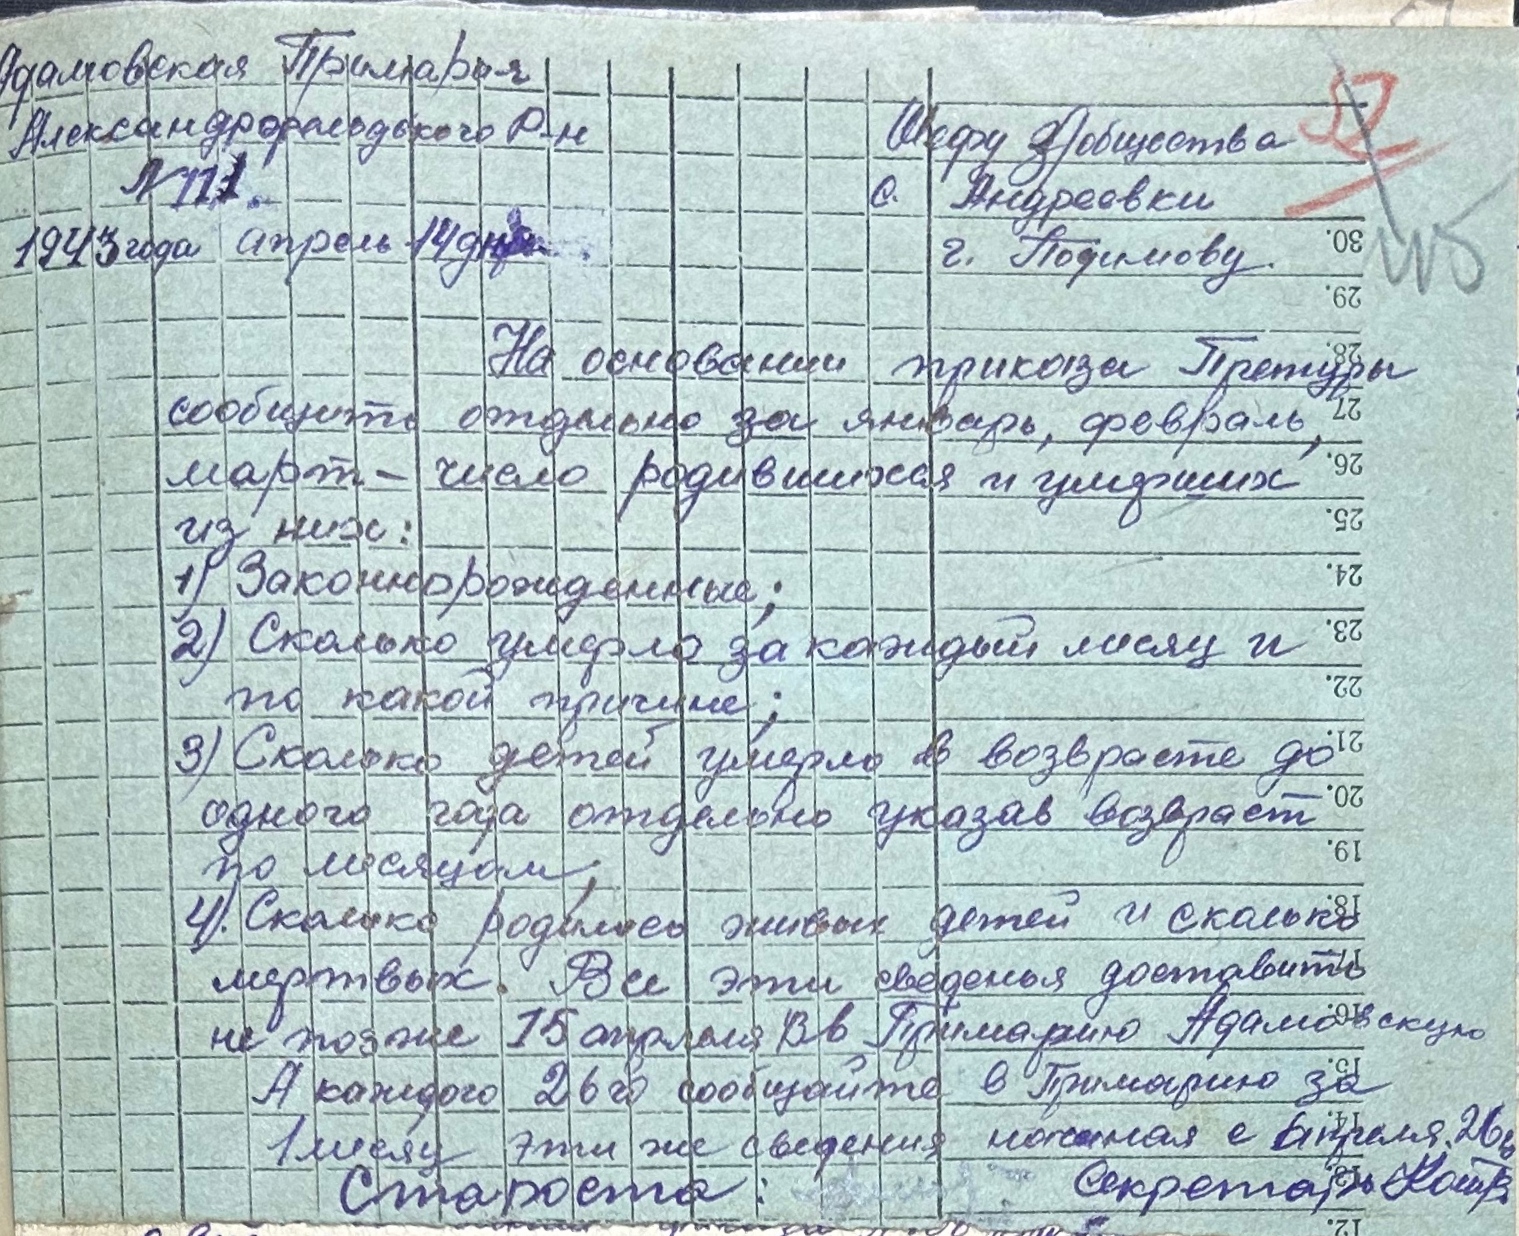 Адамовская Примария
Александрфельдького Р-н
N 111.
1943 года апрель 14 дня
Шефу Общества
с. Андреевки
г. Подимову.
52
115
На основании приказа Претуры
сообщить отдельно за январь, февраль,
март – число родившихся и умерших
из них:
1) Законнорожденные;
2) Сколько умерло за каждый месяц и
по какой причине;
3) Сколько детей умерло в возврасте до
одного года отдельно указав возвраст
по месяцам,
4). Сколько родилось живых детей и сколько
мертвых. Все эти сведенья доставить
не позже 15 апреля в Примарию Адамовскую
А каждого 26го сообщайте в Примарию за
1 месяц эти же сведения начиная с апреля. 26
Староста: Секретарь
30.
29.
28.
27.
26.
25.
24.
23.
22.
21.
20.
19.
18.
17.
16.
15.
14.
13.
12.